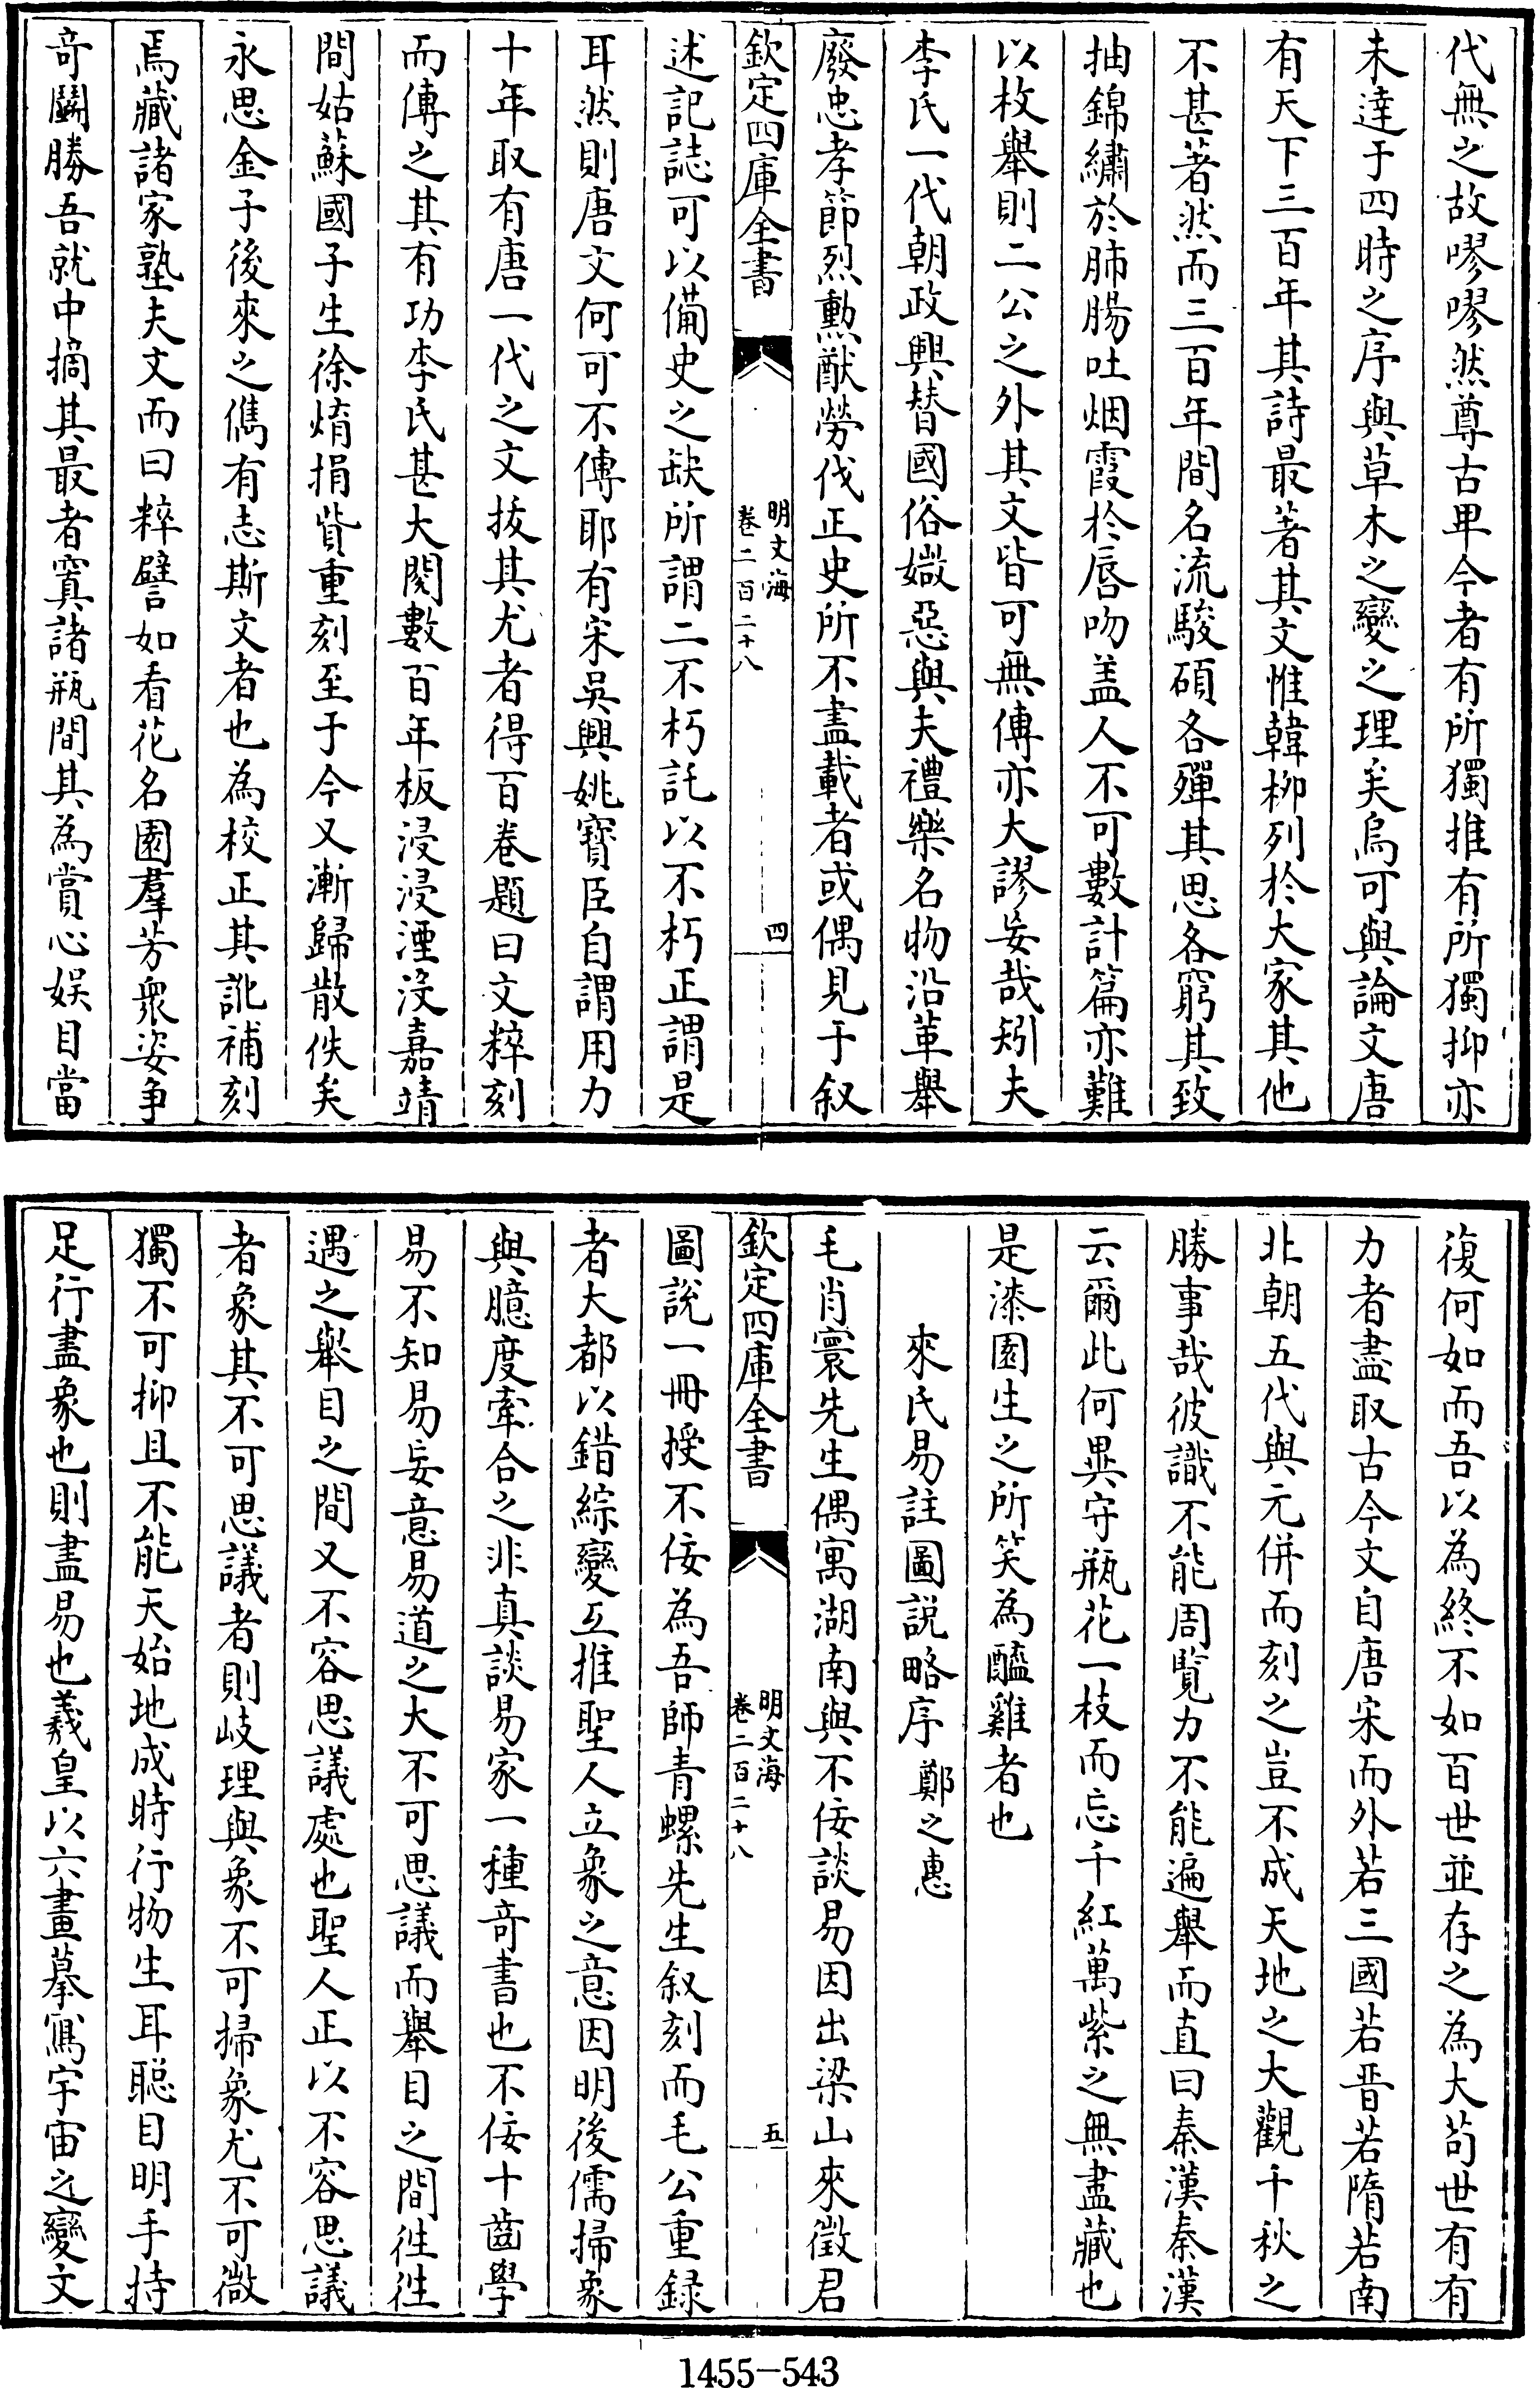 代無之故嘐嘐然尊古卑今者有所獨推有所獨抑亦
未達于四時之序與草木之變之理矣烏可與論文唐
有天下三百年其詩最著其文惟韓柳列於大家其他
不甚著然而三百年間名流駿碩各殫其思各窮其致
抽錦繡於肺腸吐烟霞於唇吻盖人不可數計篇亦難
以枚舉則二公之外其文皆可無傳亦大謬妄哉矧夫
李氏一代朝政興替國俗媺惡與夫禮樂名物沿革舉
廢忠孝節烈勲猷勞伐正史所不盡載者或偶見于叙
欽定四庫全書
明文海
卷二百二十八
四
述記誌可以備史之缺所謂二不朽託以不朽正謂是
耳然則唐文何可不傳耶有宋吳興姚寶臣自謂用力
十年取有唐一代之文拔其尤者得百卷題曰文粹刻
而傳之其有功李氏甚大閱數百年板浸浸湮沒嘉靖
間姑蘇國子生徐焴捐貲重刻至于今又漸歸散佚矣
永思金子後來之儁有志斯文者也為校正其訛補刻
焉藏諸家塾夫文而曰粹譬如看花名園羣芳衆姿争
奇鬭勝吾就中摘其最者寘諸瓶間其為賞心娱目當
復何如而吾以為終不如百世並存之為大茍世有有
力者盡取古今文自唐宋而外若三國若晋若隋若南
北朝五代與元併而刻之豈不成天地之大觀千秋之
勝事哉彼識不能周覧力不能遍舉而直曰秦漢秦漢
云爾此何異守瓶花一枝而忘千紅萬紫之無盡藏也
是漆園生之所笑為醯雞者也
來氏易註圖說略序 鄭之惠
毛肖寰先生偶寓湖南與不佞談易因出梁山來徵君
欽定四庫全書
明文海
卷二百二十八
五
圖說一冊授不佞為吾師青螺先生叙刻而毛公重録
者大都以錯綜變互推聖人立象之意因明後儒掃象
與臆度牽合之非真談易家一種奇書也不佞十齒學
易不知易妄意易道之大不可思議而舉目之間徃徃
遇之舉目之間又不容思議處也聖人正以不容思議
者象其不可思議者則岐理與象不可掃象尤不可微
獨不可抑且不能天始地成時行物生耳聪目明手持
足行盡象也則盡易也羲皇以六畫摹寫宇宙之變文
1455-543